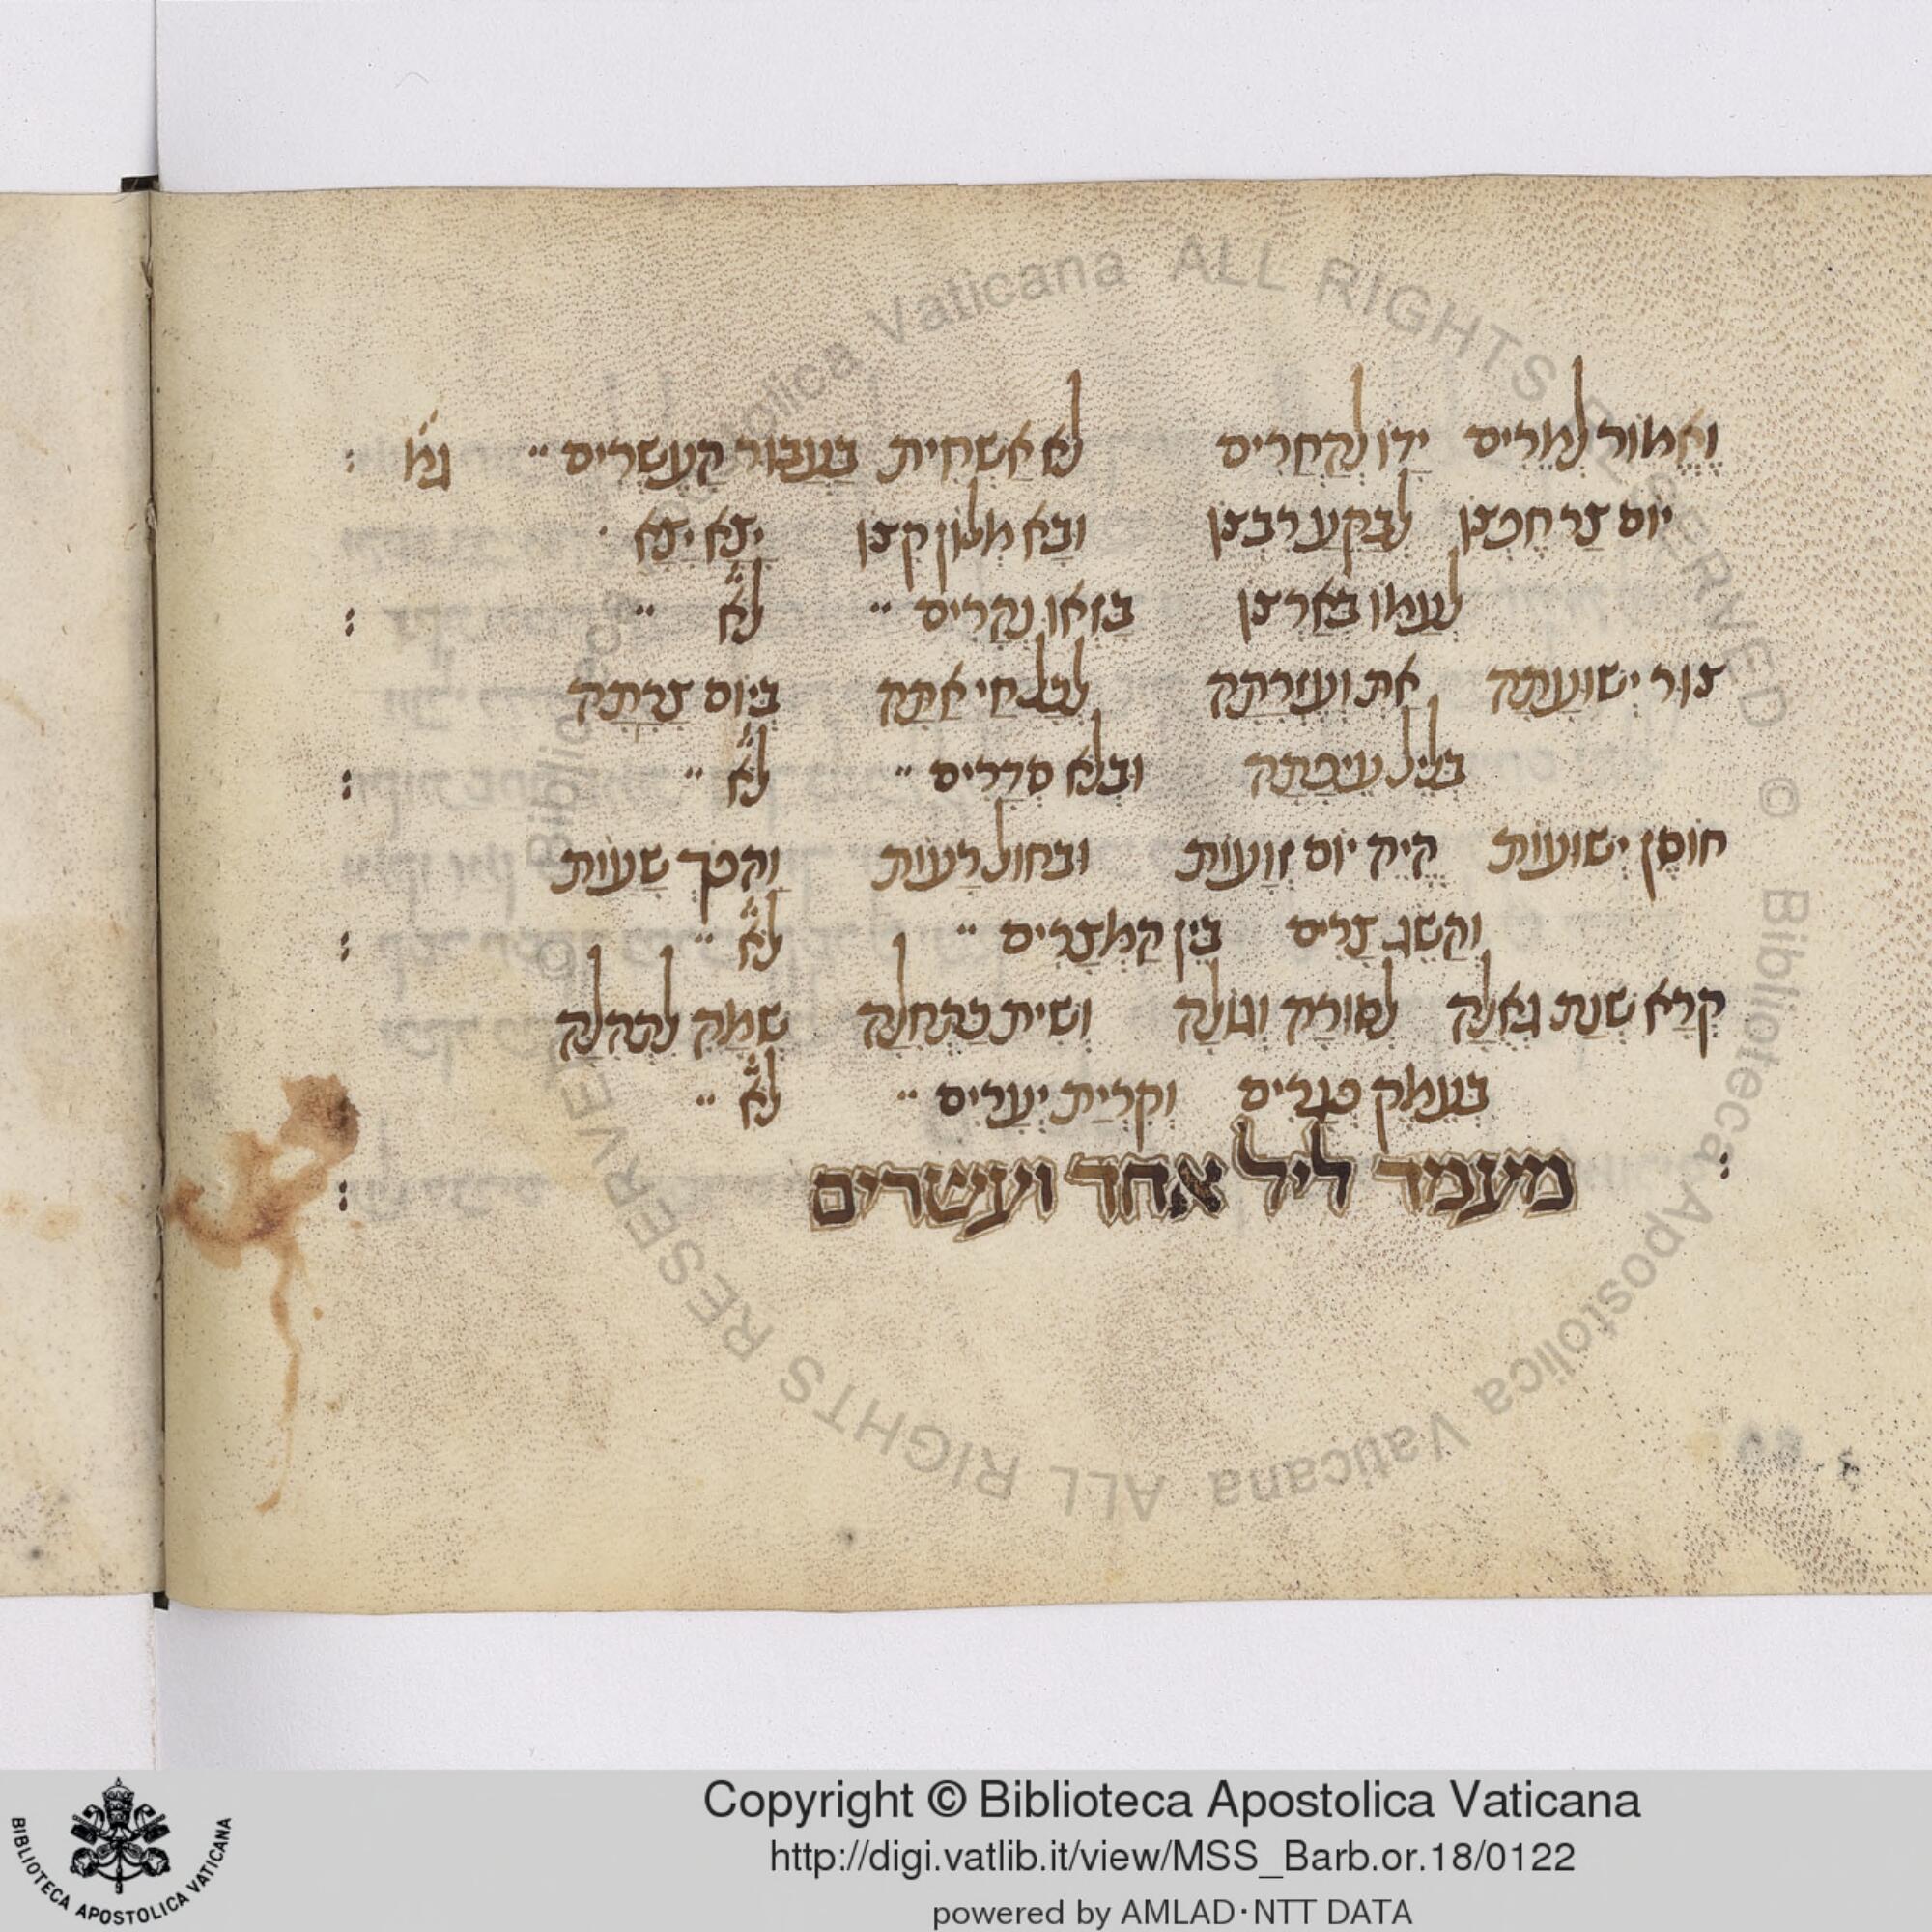 וֶאֱמוֹר לְמֹרִים יָדוֹ לְהַחֲרִים לֹא אַשְׁחִית בַּעֲבוּר הָעֶשְׂרִים ״ גמ׳ :
יוֹם צַר חֶפְצוֹ לְבַקֵּעַ רִבְצוֹ וּבָא מְלוֹן קִצּוֹ יָצֹא יָצָא ·
לְעַמּוֹ בְּאַרְצוֹ בְּזֹאו נְהָרִים ״ לא ״ :
צוּר יְשׁוּעָתָהּ אֶת וְעֶזְרָתָהּ לְכָל חַי אַתָּה בְּיוֹם צָרָתָהּ
בְּלֵיל עֵיפָתָהּ וּבְלֹא סְדָרִים ״ לא ״ :
חוֹסֶן יְשׁוּעוֹת הֱיֵה יוֹם זְוָעוֹת וּבְחוּל רָעוֹת וַהֲפֹךְ שָׁעוֹת
וְהַשֵּׂג צָרִים בֵּין הַמְּצָרִים ״ לא ״ :
קְרָא שְׁנַת גְּאֻלָּה לְסוּרָה וְגוֹלָה וְשִׁית כְּבַתְּחִלָּה שִׂמְחָה לִקְהִלָּה
בְּעֵמֶק פְּגָרִים וְקִרְיַת יְעָרִים ״ לא ״
: מעמד ליל אחד ועשרים :
Biblioteca Apostolica Vaticana ALL RIGHTS RESERVED © Biblioteca Apostolica Vaticana ALL RIGHTS RESERVED ©
BIBLIOTECA APOSTOLICA VATICANA
Copyright © Biblioteca Apostolica Vaticana
http://digi.vatlib.it/view/MSS_Barb.or.18/0122
powered by AMLAD·NTT DATA